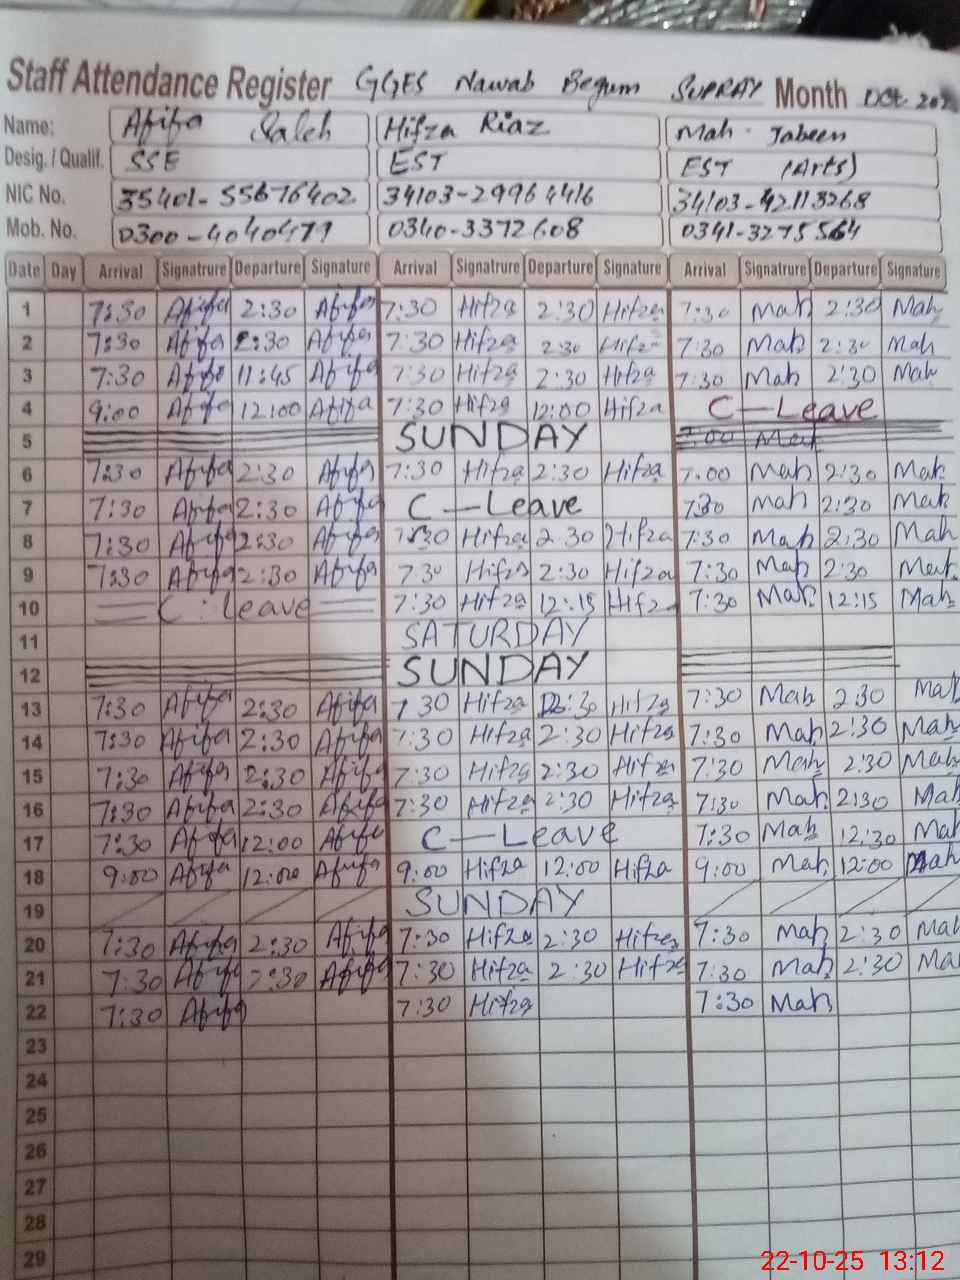 Staff Attendance Register GGES Nawab Begum SUPRAY Month Oct.
Name: Afifa Saleh Hifza Riaz Mah-Jabeen
Desig. / Qualif. SSE EST EST (Arts)
NIC No. 35401-55676402 34103-29964416 34103-42113268
Mob. No. 0300-4040479 0340-3372608 0341-3275564
Date Day Arrival Signatrure Departure Signature Arrival Signatrure Departure Signature Arrival Signatrure Departure Signature
1 7:30 Afifa 2:30 Afifa 7:30 Hifza 2:30 Hifza 7:30 Mah 2:30 Mah
2 7:30 Afifa 2:30 Afifa 7:30 Hifza 2:30 Hifza 7:30 Mah 2:30 Mah
3 7:30 Afifa 11:45 Afifa 7:30 Hifza 2:30 Hifza 7:30 Mah 2:30 Mah
4 9:00 Afifa 12:00 Afifa 7:30 Hifza 12:00 Hifza C-Leave
5 SUNDAY
6 7:30 Afifa 2:30 Afifa 7:30 Hifza 2:30 Hifza 7:00 Mah 2:30 Mah
7 7:30 Afifa 2:30 Afifa C-Leave 7:30 Mah 2:30 Mah
8 7:30 Afifa 2:30 Afifa 7:30 Hifza 2:30 Hifza 7:30 Mah 2:30 Mah
9 7:30 Afifa 2:30 Afifa 7:30 Hifza 2:30 Hifza 7:30 Mah 2:30 Mah
10 C.Leave 7:30 Hifza 12:15 Hifza 7:30 Mah 12:15 Mah
11 SATURDAY
12 SUNDAY
13 7:30 Afifa 2:30 Afifa 7:30 Hifza 2:30 Hifza 7:30 Mah 2:30 Mah
14 7:30 Afifa 2:30 Afifa 7:30 Hifza 2:30 Hifza 7:30 Mah 2:30 Mah
15 7:30 Afifa 2:30 Afifa 7:30 Hifza 2:30 Hifza 7:30 Mah 2:30 Mah
16 7:30 Afifa 2:30 Afifa 7:30 Hifza 2:30 Hifza 7:30 Mah 2:30 Mah
17 7:30 Afifa 12:00 Afifa C-Leave 7:30 Mah 12:30 Mah
18 9:00 Afifa 12:00 Afifa 9:00 Hifza 12:00 Hifza 9:00 Mah 12:00 Mah
19 SUNDAY
20 7:30 Afifa 2:30 Afifa 7:30 Hifza 2:30 Hifza 7:30 Mah 2:30 Mah
21 7:30 Afifa 2:30 Afifa 7:30 Hifza 2:30 Hifza 7:30 Mah 2:30 Ma
22 7:30 Afifa 7:30 Hifza 7:30 Mah
23
24
25
26
27
28
29
22-10-25 13:12